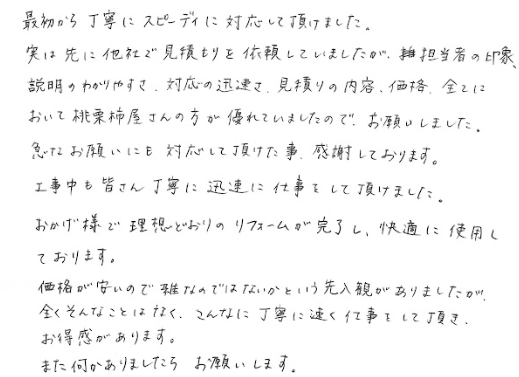 最初から丁寧にスピーディに対応して頂けました。
実は先に他社で見積もりを依頼していましたが、担当者の印象、
説明のわかりやすさ、対応の迅速さ、見積りの内容、価格、全てに
おいて桃栗柿屋さんの方が優れていましたので、お願いしました。
急なお願いにも対応して頂けた事、感謝しております。
工事中も皆さん丁寧に迅速に仕事をして頂けました。
おかげ様で理想どおりのリフォームが完了し、快適に使用し
ております。
価格が安いので雑なのではないかという先入観がありましたが、
全くそんなことはなく、こんなに丁寧に速く仕事をして頂き、
お得感があります。
また何かありましたら お願いします。